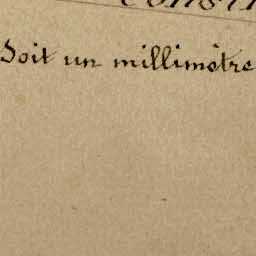 Soit un millimètre